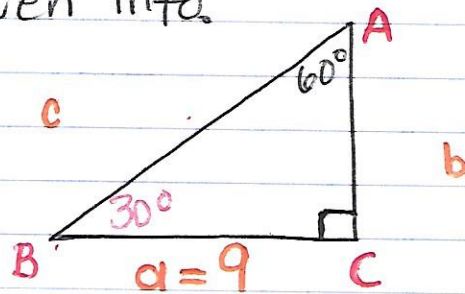 info.
A
60°
c
b
30°
B
a = 9
C